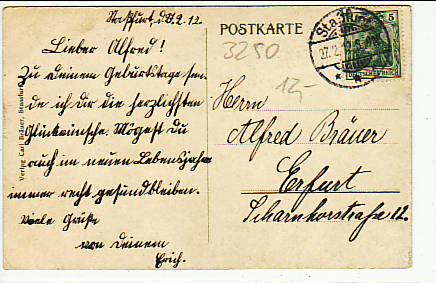 Staßfurt, d. 2. 12
Lieber Alfred!
Zu deinem Geburtstage sen-
de ich dir die herzlichsten
Glückwünsche. Mögest du
auch im neuen Lebensjahre
immer recht gesund bleiben.
Viele Grüße
von deinem
Erich.
Verlag Carl
POSTKARTE
3250
12,-
Staßfurt
27.2.
5
Herrn
Alfred Bräuer
Erfurt
Scharnhorststraße 12.